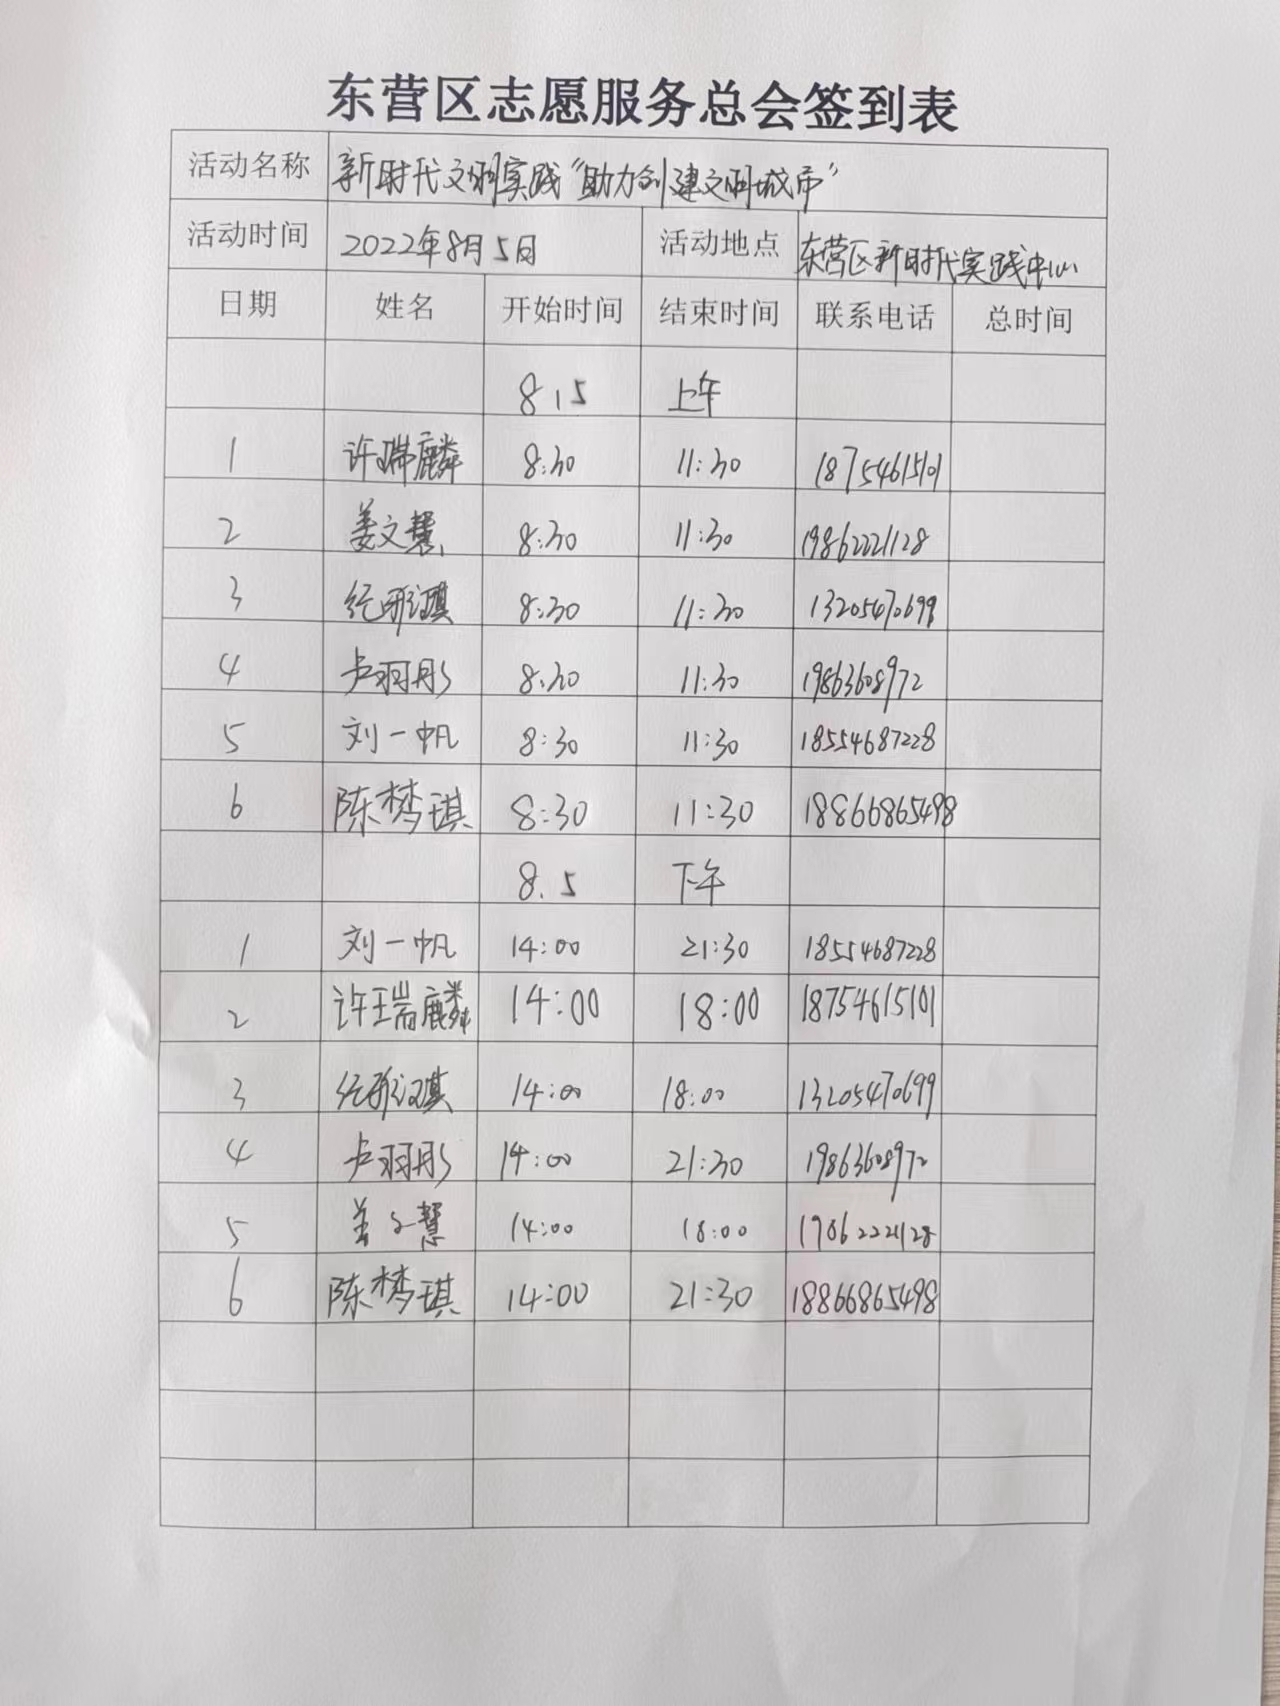 东营区志愿服务总会签到表
活动名称 新时代文明实践“助力创建文明城市”
活动时间 2022年8月5日 活动地点 东营区新时代实践中心
日期 姓名 开始时间 结束时间 联系电话 总时间
8.5 上午
1 许瑞麟 8:30 11:30 18754615101
2 姜文慧 8:30 11:30 19862221128
3 8:30 11:30 13205470699
4 卢羽彤 8:30 11:30 19863608972
5 刘一帆 8:30 11:30 18554687228
6 陈梦琪 8:30 11:30 18866865498
8.5 下午
1 刘一帆 14:00 21:30 18554687228
2 许瑞麟 14:00 18:00 18754615101
3 14:00 18:00 13205470699
4 卢羽彤 14:00 21:30 19863608972
5 姜文慧 14:00 18:00 19862221128
6 陈梦琪 14:00 21:30 18866865498